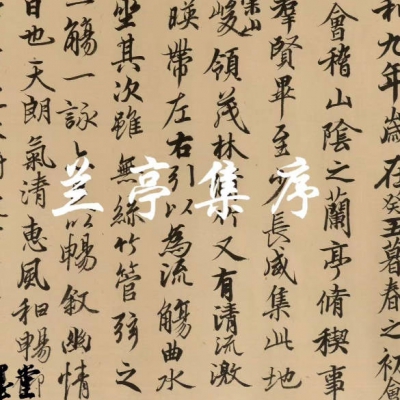 和九年歲在癸丑暮春之初會
會稽山陰之蘭亭脩稧事
羣賢畢至少長咸集此地
崇山
峻領茂林脩竹又有清流激
暎帶左右引以為流觴曲水
坐其次雖無絲竹管弦之
一觴一詠以暢叙幽情
日也天朗氣清惠風和暢仰
兰亭集序
堂